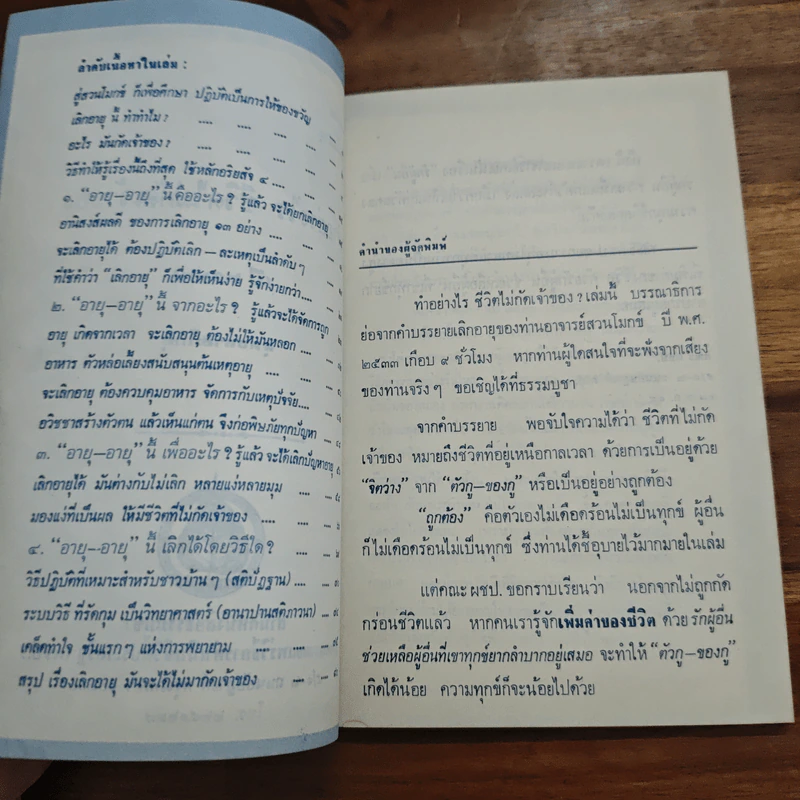 ลำดับเนื้อหาในเล่ม :
สู่สวนโมกข์ ก็เพื่อศึกษา ปฏิบัติเป็นการให้ของขวัญ ....
เลิกอายุ นี้ ทำทำไม ? .... .... .... ....
อะไร มันกัดเจ้าของ ? .... .... .... ....
วิธีทำให้รู้เรื่องนี้ถึงที่สุด ใช้หลักอริยสัจ ๔ .... ....
๑. “อายุ–อายุ” นี้ คืออะไร ? รู้แล้ว จะได้ยกเลิกอายุ
อานิสงส์ผลดี ของการเลิกอายุ ๑๓ อย่าง .... ....
จะเลิกอายุได้ ต้องปฏิบัติเลิก – ละเหตุเป็นลำดับๆ
ที่ใช้คำว่า “เลิกอายุ” ก็เพื่อให้เห็นง่าย รู้จักง่ายกว่า....
๒. “อายุ–อายุ” นี้ จากอะไร ? รู้แล้วจะได้จัดการถูก
อายุ เกิดจากเวลา จะเลิกอายุ ต้องไม่ให้มันหลอก ....
อาหาร ตัวหล่อเลี้ยงสนับสนุนต้นเหตุอายุ .... ....
จะเลิกอายุ ต้องควบคุมอาหาร จัดการกับเหตุปัจจัย....
อวิชชาสร้างตัวตน แล้วเห็นแก่ตน จึงก่อพิษภัยทุกปัญหา
๓. “อายุ–อายุ” นี้ เพื่ออะไร ? รู้แล้ว จะได้เลิกปัญหาอายุ
เลิกอายุได้ มันต่างกับไม่เลิก หลายแง่หลายมุม ....
มองแง่ที่เป็นผล ให้มีชีวิตที่ไม่กัดเจ้าของ .... ....
๔. “อายุ–อายุ” นี้ เลิกได้โดยวิธีใด ? .... ....
วิธีปฏิบัติที่เหมาะสำหรับชาวบ้านๆ (สติปัฏฐาน) ....
ระบบวิธี ที่รัดกุม เป็นวิทยาศาสตร์ (อานาปานสติภาวนา)
เคล็ดทำใจ ขั้นแรกๆ แห่งการพยายาม .... ....
สรุป เรื่องเลิกอายุ มันจะได้ไม่มากัดเจ้าของ ....
คำนำของผู้จัดพิมพ์
ทำอย่างไร ชีวิตไม่กัดเจ้าของ ? เล่มนี้ บรรณาธิการ
ย่อจากคำบรรยายเลิกอายุของท่านอาจารย์สวนโมกข์ ปี พ.ศ.
๒๕๓๓ เกือบ ๙ ชั่วโมง หากท่านผู้ใดสนใจที่จะฟังจากเสียง
ของท่านจริงๆ ขอเชิญได้ที่ธรรมบูชา
จากคำบรรยาย พอจับใจความได้ว่า ชีวิตที่ไม่กัด
เจ้าของ หมายถึงชีวิตที่อยู่เหนือกาลเวลา ด้วยการเป็นอยู่ด้วย
“จิตว่าง” จาก “ตัวกู–ของกู” หรือเป็นอยู่อย่างถูกต้อง
“ถูกต้อง” คือตัวเองไม่เดือดร้อนไม่เป็นทุกข์ ผู้อื่น
ก็ไม่เดือดร้อนไม่เป็นทุกข์ ซึ่งท่านได้ชี้อุบายไว้มากมายในเล่ม
แต่คณะ ผชป. ขอกราบเรียนว่า นอกจากไม่ถูกกัด
กร่อนชีวิตแล้ว หากคนเรารู้จักเพิ่มค่าของชีวิต ด้วย รักผู้อื่น
ช่วยเหลือผู้อื่นที่เขาทุกข์ยากลำบากอยู่เสมอ จะทำให้ “ตัวกู–ของกู”
เกิดได้น้อย ความทุกข์ก็จะน้อยไปด้วย